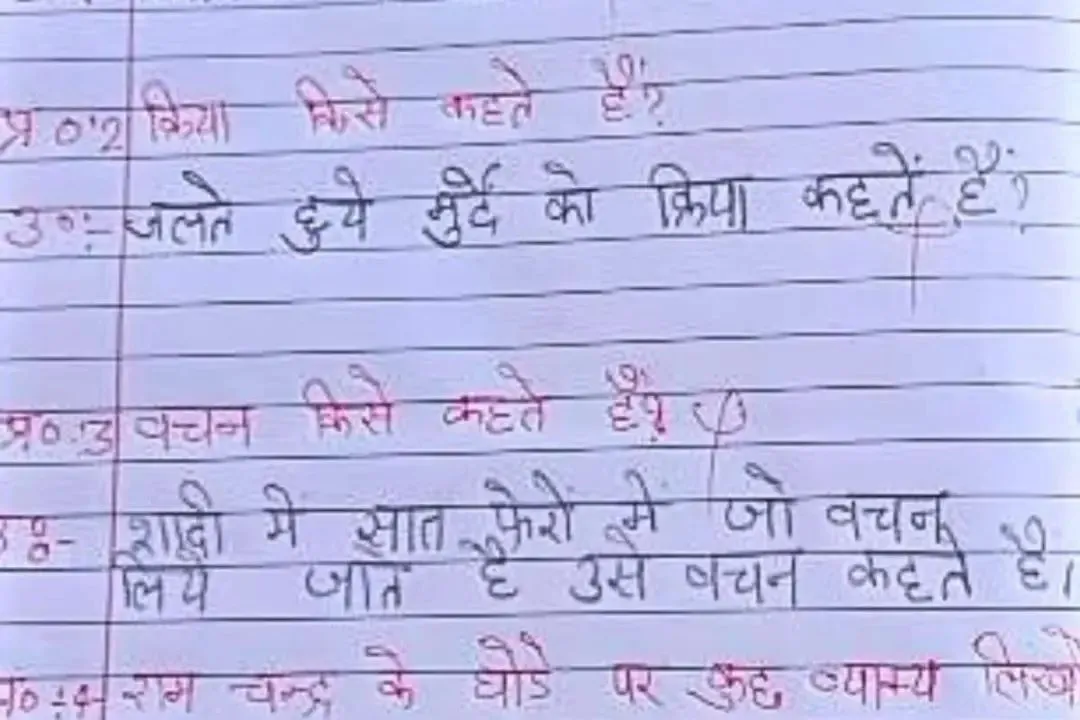 प्र०:2 क्रिया किसे कहते हैं?
उ०:- जलते हुये मुर्दे को क्रिया कहतें हैं?
प्र०:3 वचन किसे कहते हैं?
उ०:- शादी में सात फेरों में जो वचन
लिये जाते है उसे वचन कहते है।
प्र०:4- राम चन्द्र के घोडे पर कुछ लिखो